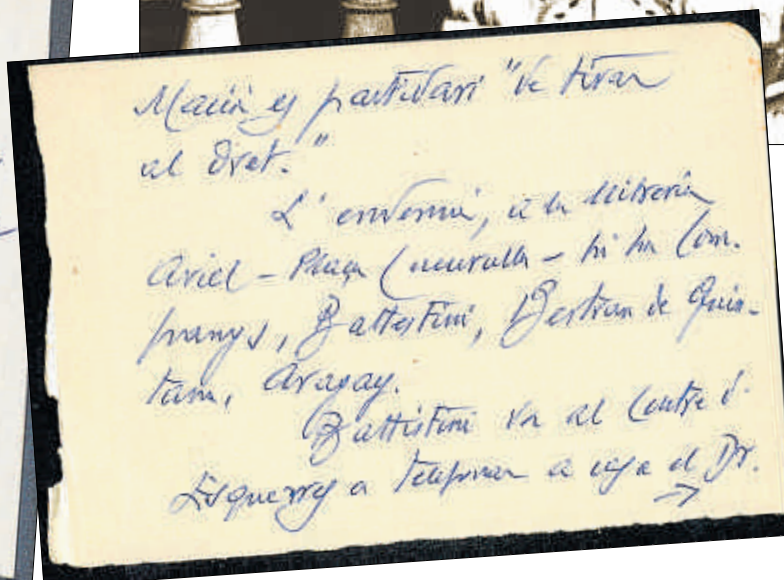 Macià es partidari "de tirar
al dret."
L'endemà, a la llibreria
Ariel – Plaça Cucurulla – hi ha Com-
panys, Battestini, Bertran de Quin-
tana, Aragay.
Battistini va al Centre d'
Esquerres a telefonar a casa el Dr.
→